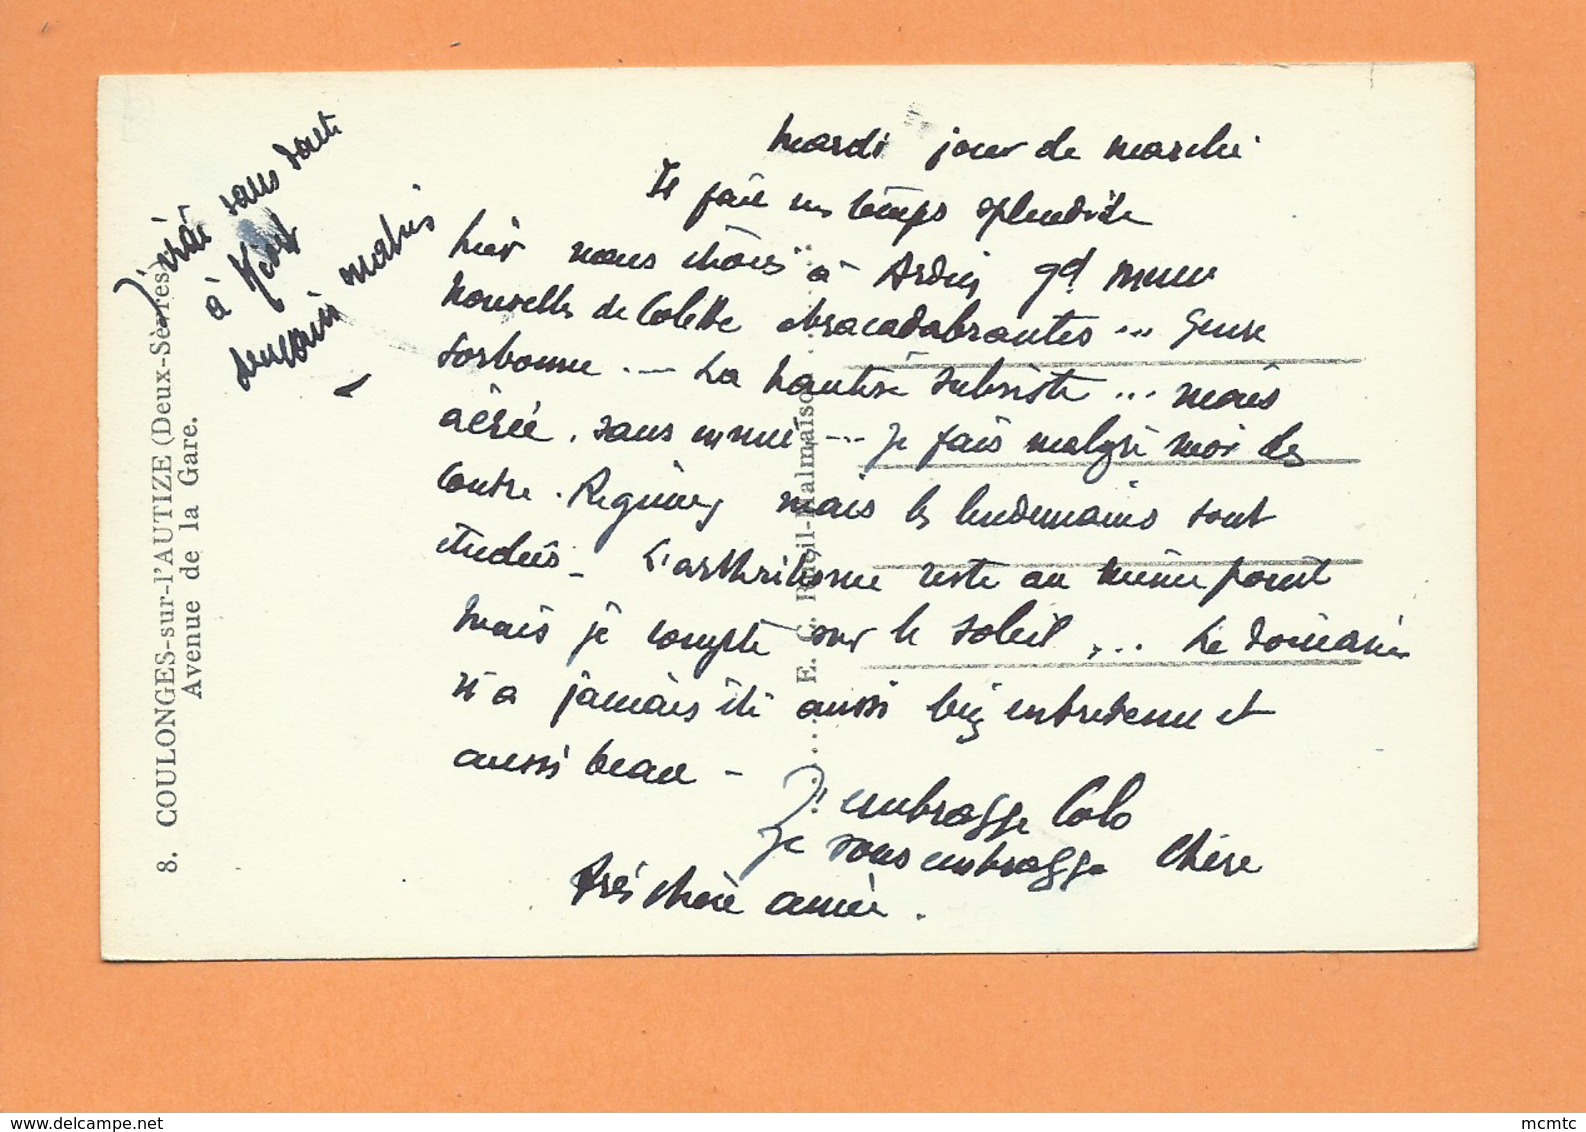 mardi jour de marché
Il fait un temps splendide
hier nous étions à Ardin gd
nouvelles de Colette abracadabrantes ... genre
Sorbonne . — La hantise subsiste ... mais
aérée . sans -- je fais malgré moi des
contre . mais les lendemains sont
études - L'arthritisme reste au même point
mais je compte sur le soleil ... Le domaine
n'a jamais été aussi bien entretenu et
aussi beau -
J'embrasse Colo
Je vous embrasse Chère
très chère amie .
J'irai sans doute
à Niort
demain matin
8. COULONGES-sur-l'AUTIZE (Deux-Sèvres)
Avenue de la Gare.
E. C. Rueil-Malmaison
mcmtc